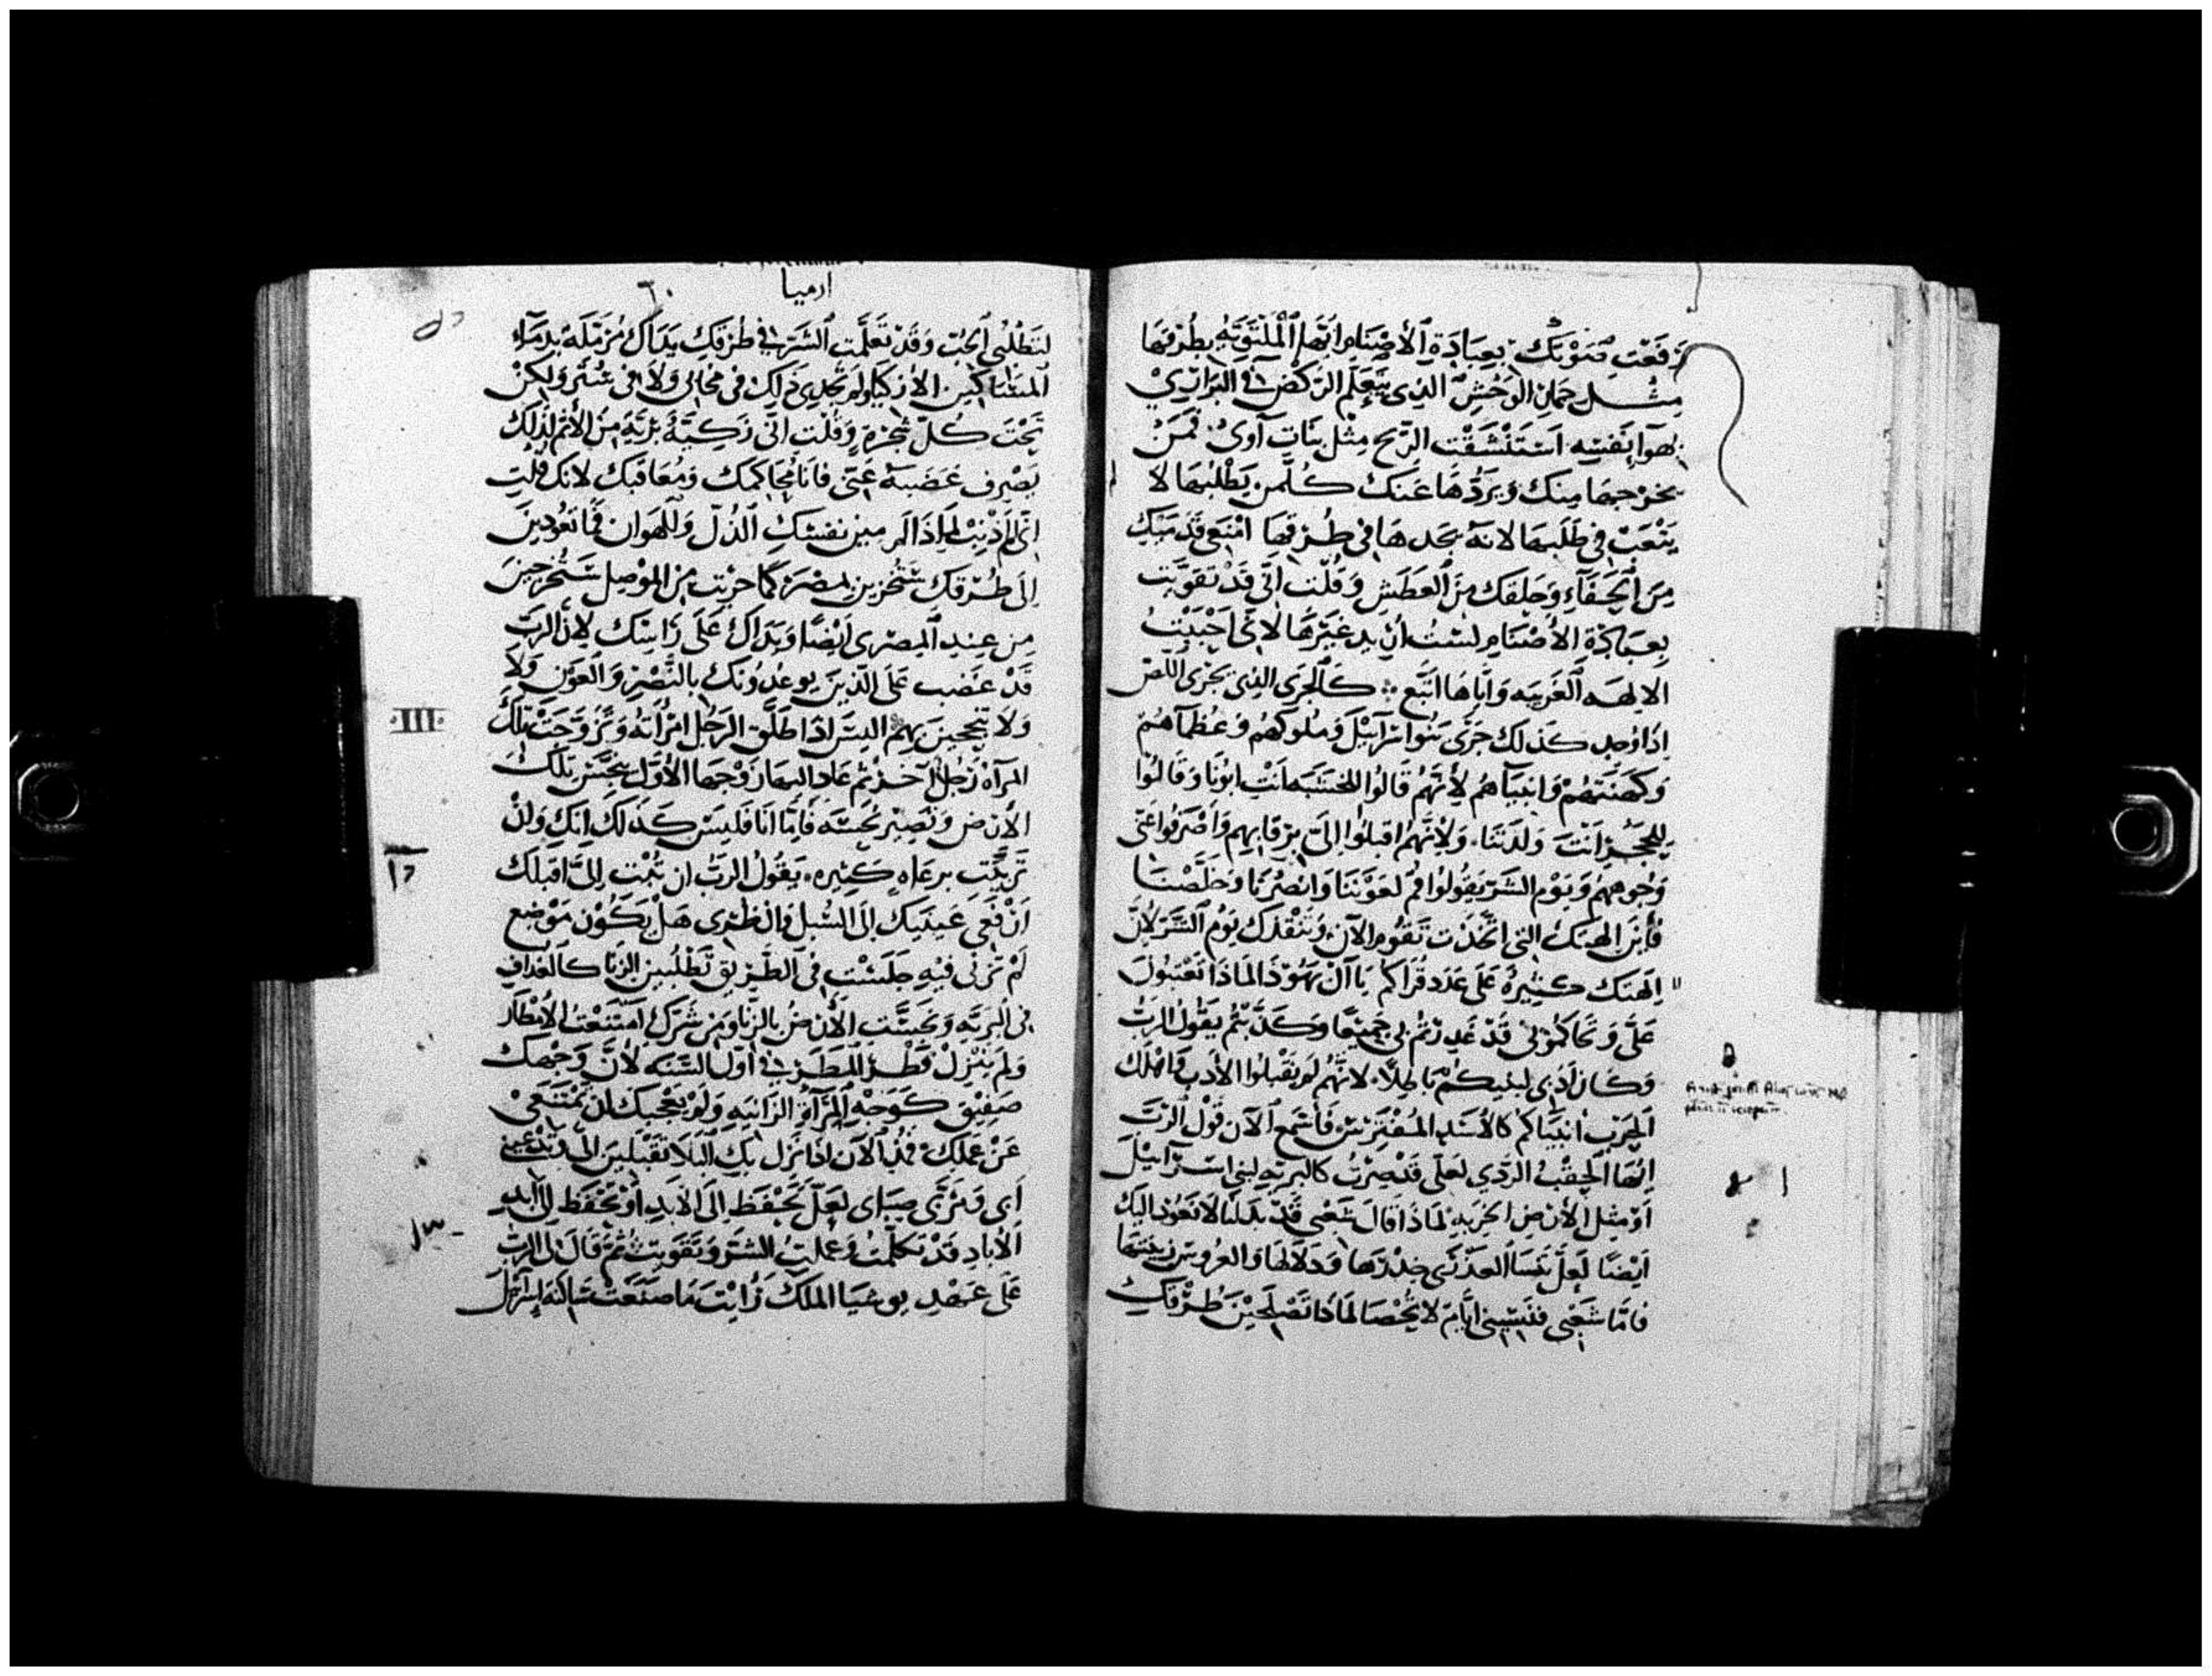 رفعت صوتك بعبادة الأصنام ايتها الملتويه بطرقها
مثل حمار الوحش الذي يتعلم الركض في البراري
بهوا نفسه استنشقت الريح مثل بنات آوى فمن
يخرجها منك ويردها عنك كلمن يطلبها لا
يتعب في طلبها لانه يجدها في طرقها امنعي قدميك
من الحفاء وحلقك من العطش وقلت اني قد تقويت
بعبادة الأصنام لست اريد غيرها لاني احببت
الالهه الغريبه واياها اتبع كالخزي الذي يخزى اللص
اذا وجد كذلك خزي بنوا اسرآييل وملوكهم وعظمآهم
وكهنتهم وانبيآهم لأنهم قالوا للخشبه انت ابونا وقالوا
للحجر انت ولدتنا ولانهم اقبلوا الي برقابهم واصرفوا عني
وجوههم ويوم الشر يقولوا قم لعوننا وانصرنا وخلصنا
فأين الهتك التي اتخذت تقوم الآن وتنقذك يوم الشر لأن
الهتك كثيرة على عدد قراكم يا آل يهوذا لماذا تعتبون
علي وتحاكموني قد غدرتم بي جميعا وكذبتم يقول الرب
وكان أدبي لبنيكم باطلا لانهم لم يقبلوا الأدب فاهلك
الحرب انبيآكم كالأسد المفترس فأسمع الآن قول الرب
ايها الحقب الردي لعلي قد صرت كالبريه لبني اسرآييل
او مثل الأرض الخربه لماذا قال شعبي قد بدلنا لا نعود اليك
ايضا لعل تنسا العذرى خدرها ودلالها والعروس زينتها
فاما شعبي فنسيني ايام لا تحصا لماذا تصلحين طرقك
ارميا
لتطلبي الحب وقد تعلمت الشر في طرقك يداك مزملة بدمآء
المساكين الازكيا ولم تجدي ذلك في مخابى ولا في ستر ولكن
تحت كل شجرة وقلت اني زكية برية من الأثم لذلك
يصرف غضبه عني فانا محاكمك ومعاقبك لانك قلت
اني لم أذنب لماذا المزمين نفسك الذل والهوان فما تعودين
إلى طرقك ستخزين بمصر كما خزيت من الموصل ستخرجين
من عند المصري ايضا ويداك على راسك لأن الرب
قد غضب على الذين يوعدونك بالنصر والعون ولا
ولا تنجحين بهم اليس اذا طلق الرجل امرأته وتزوجت تلك
المرآة رجل آخر ثم عاد اليها زوجها الأول تنجس تلك
الأرض وتصير نجسه فأما انا فليس كذلك انك ولان
تربيت برعاه كثيره يقول الرب ان تبت الي اقبلك
ارفعي عينيك إلى السبل وانظري هل يكون موضع
لم تزني فيه جلست في الطريق تطلبين الزنا كالغداف
في البريه ونجست الأرض بالزنا ومن شرك امتنعت الأمطار
ولم ينزل قطر المطر في اول السنه لأن وجهك
صفيق كوجه المرآة الزانيه ولم يعجبك ان تمتنعي
عن عملك فمذ الآن اذا نزل بك البلا تقبلين الي وتدعيني
أبي ومربي صباي لعل تحفظ إلى الابد او تحفظ الى أبد
الأباد قد تكلمت وعملت الشر وتقويت ثم قال لي الرب
على عهد يوشيا الملك رأيت ما صنعت ساكنة إسرآيل
III